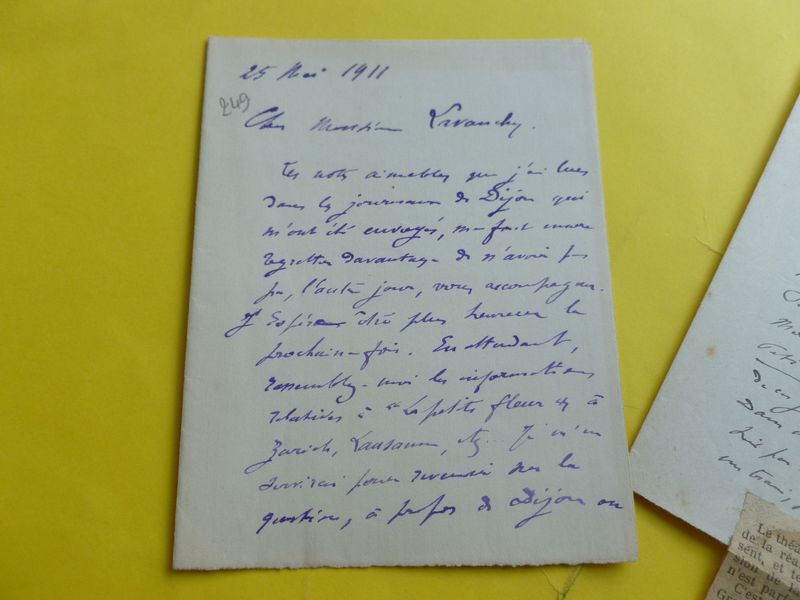 25 Mai 1911
249
Cher Monsieur Lavanchy.
Les notes aimables que j'ai lues
dans les journaux de Dijon qui
m'ont été envoyés, me font encore
regretter davantage de n'avoir pas
pu, l'autre jour, vous accompagner.
J'espère être plus heureux la
prochaine fois. En attendant,
rassemblez-moi les informations
relatives à "La petite fleur" à
Zurich, Lausanne, etc... Je m'en
servirai pour revenir sur la
question, à propos de Dijon ou
Le théâ
de la réa
sent, et te
sion de la
n'est par
C'es
Gr